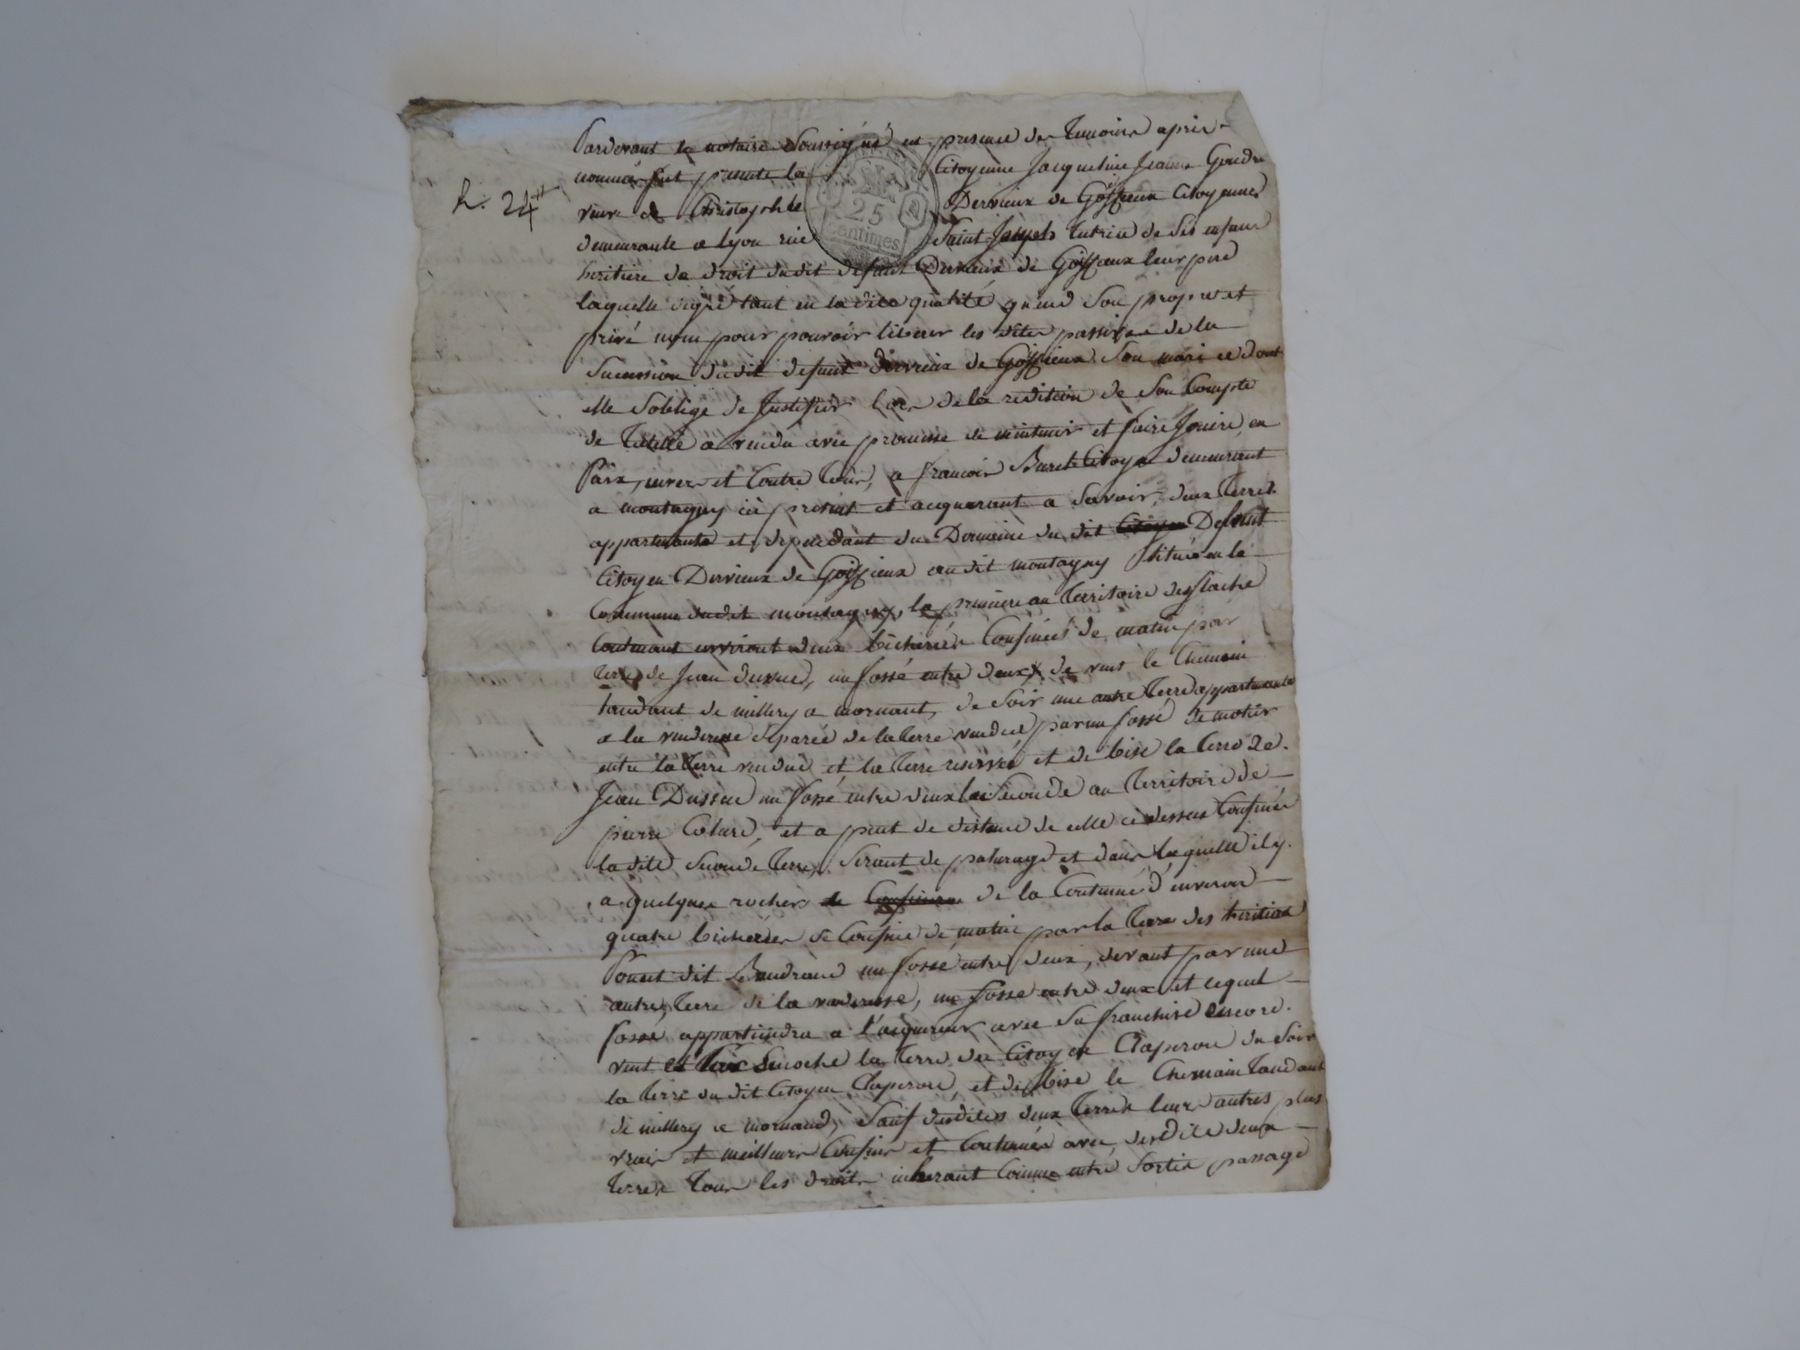 Pardevant le notaire Soussigné en presence des temoins après
nommés fut presente la Citoyenne Jacqueline Jeanne
R. 24
veuve de Christophle Dervieux de Goiffieux Citoyenne
25
Centimes
demeurante a Lyon rue Saint Joseph tutrice de ses enfans
heritiers de droit dudit defunt Dervieux de Goiffieux leur pere
laquelle de gré tant en la dite qualité qu'en son propre et
privé nom pour pouvoir liberer les dites passives de la
Succession dudit defunt dervieux de Goiffieux Son mari ce dont
elle Soblige de Justifier Lors de la redition de Son Compte
de Tutelle a vendu avec promesse de maintenir et faire Jouire en
Paix, envers et Contre tous, a francois Citoyen demeurant
a montagny ici present et acquerant a Savoir, deux Terres
appartenante et dependant du Domaine du dit Citoyen Defunt
Citoyen Dervieux de Goiffieux au dit montagny Située en la
Commune dudit montagny, la premiere au Territoire
Contenant environt deux bicherées Confinées de matin par
terre de Jean, un fossé entre deux, de vent le Chemain
tandant de millery a mornant, de Soir une autre Terre appartenante
a la venderesse Separée de la terre vendue par un fossé de motier
entre la Terre vendue et la Terre reservée et de bise la terre de
Jean un fossé entre deux la Seconde au Territoire de
pierre Colard, et a peut de distance de celle ci dessus Confinée
la dite Seconde Terre, Servant de paturage et dans laquelle il y
a quelques rochers de Confinée de la Contenue d'environ
quatre bicherées Se Confine de matin par la Terre des heritiers
Ponset dit un fossé entre deux, devant par une
autre Terre de la venderesse, un fossé entre deux et lequel
fossé appartiendra a l'acquereur avec Sa franchise encore
vent et la Terre du Citoyen Claperon du Soir
la terre du dit Citoyen Claperon, et de bise le Chemain Tandant
de millery a mornand, Sauf desdites deux Terres leurs autres plus
vrais et meilleurs Confins et Contenues avec desdite deux
Terres tous les droits inherant Comme entré Sortie passage